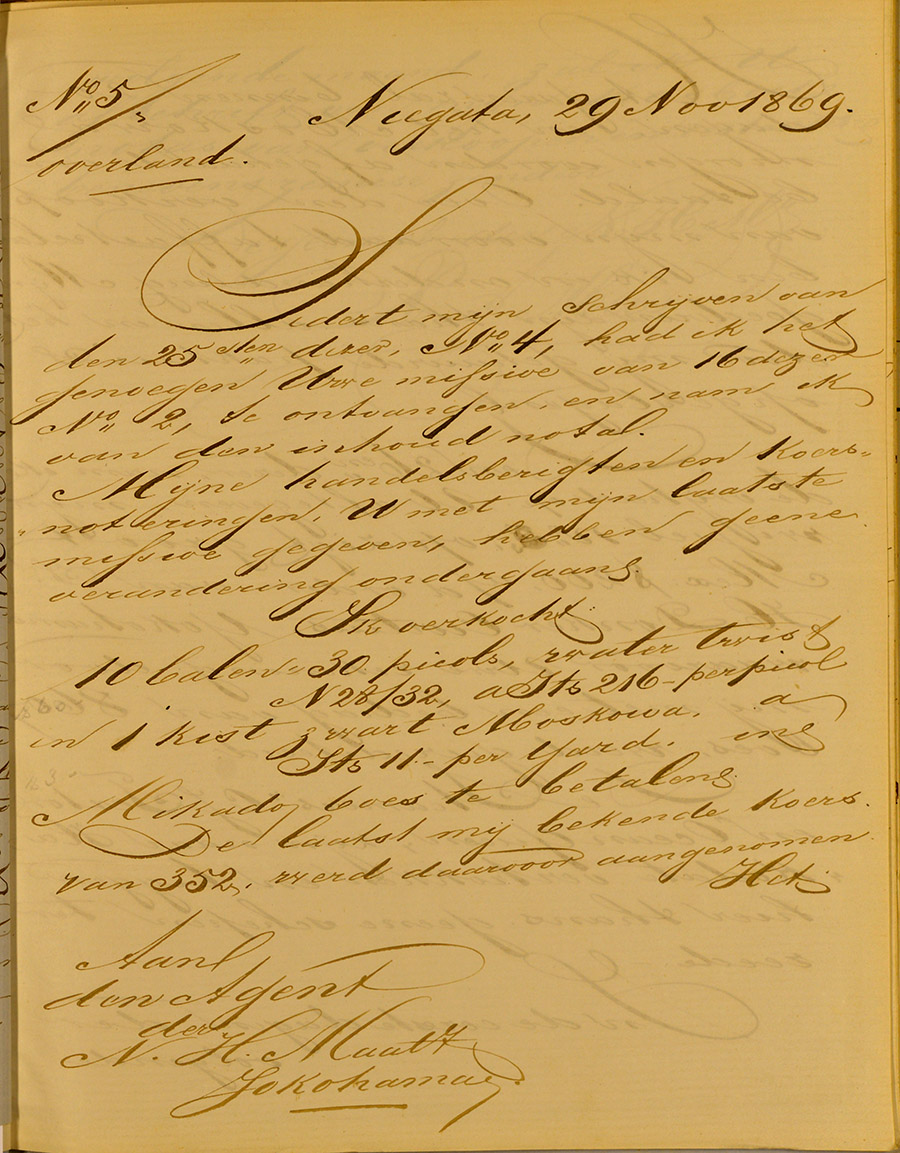 No 5
Neegata, 29 Nov 1869.
overland.
Sedert mijn schrijven van
den 25sten dezer, No 4, had ik het
genoegen Uwe missive van 16 dezer
No 2, te ontvangen, en nam ik
van den inhoud nota.
Mijne handelsberigten en koers-
"noteringen, U met mijn laatste
missive gegeven, hebben geene
verandering ondergaan.
Ik verkocht
10 balen = 30 picols, water twist
N 28/32, a Its 216 - per picol
en 1 kist zwart Moskowa, a
Its 11.- per Yard, in
Mikado boes te betalen.
De laatst mij bekende koers.
van 352, werd daarvoor aangenomen.
Het
Aan
den Agent
der
N. H. Maatz
Jokohama.